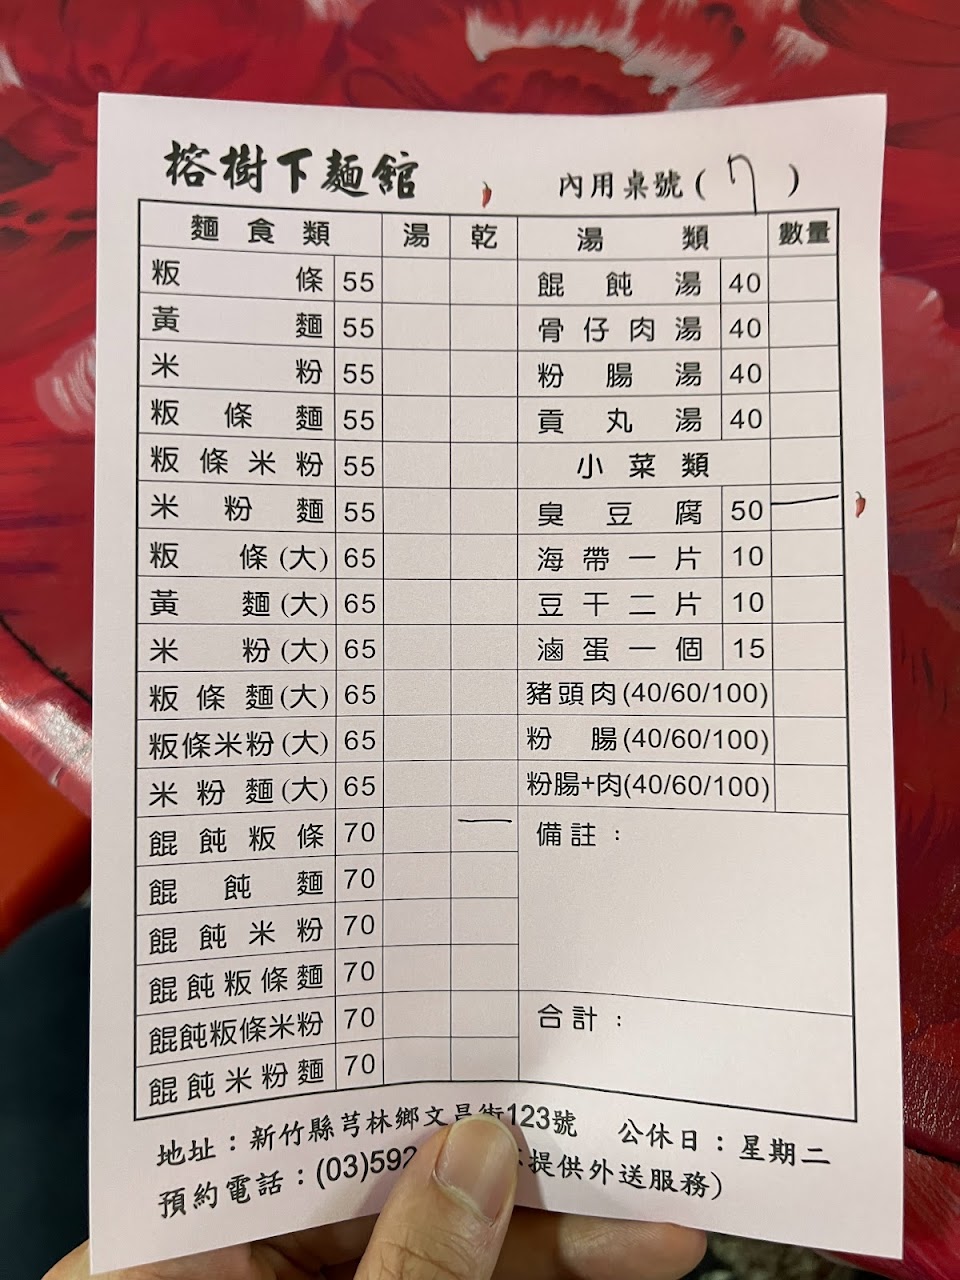 榕樹下麵館 內用桌號(7)
麵食類 湯 乾 湯類 數量
粄條 55 餛飩湯 40
黃麵 55 骨仔肉湯 40
米粉 55 粉腸湯 40
粄條麵 55 貢丸湯 40
粄條米粉 55 小菜類
米粉麵 55 臭豆腐 50 一
粄條(大) 65 海帶一片 10
黃麵(大) 65 豆干二片 10
米粉(大) 65 滷蛋一個 15
粄條麵(大) 65 豬頭肉(40/60/100)
粄條米粉(大) 65 粉腸(40/60/100)
米粉麵(大) 65 粉腸+肉(40/60/100)
餛飩粄條 70 一 備註：
餛飩麵 70
餛飩米粉 70
餛飩粄條麵 70
餛飩粄條米粉 70 合計：
餛飩米粉麵 70
地址：新竹縣芎林鄉文昌街123號 公休日：星期二
預約電話：(03)592 提供外送服務)